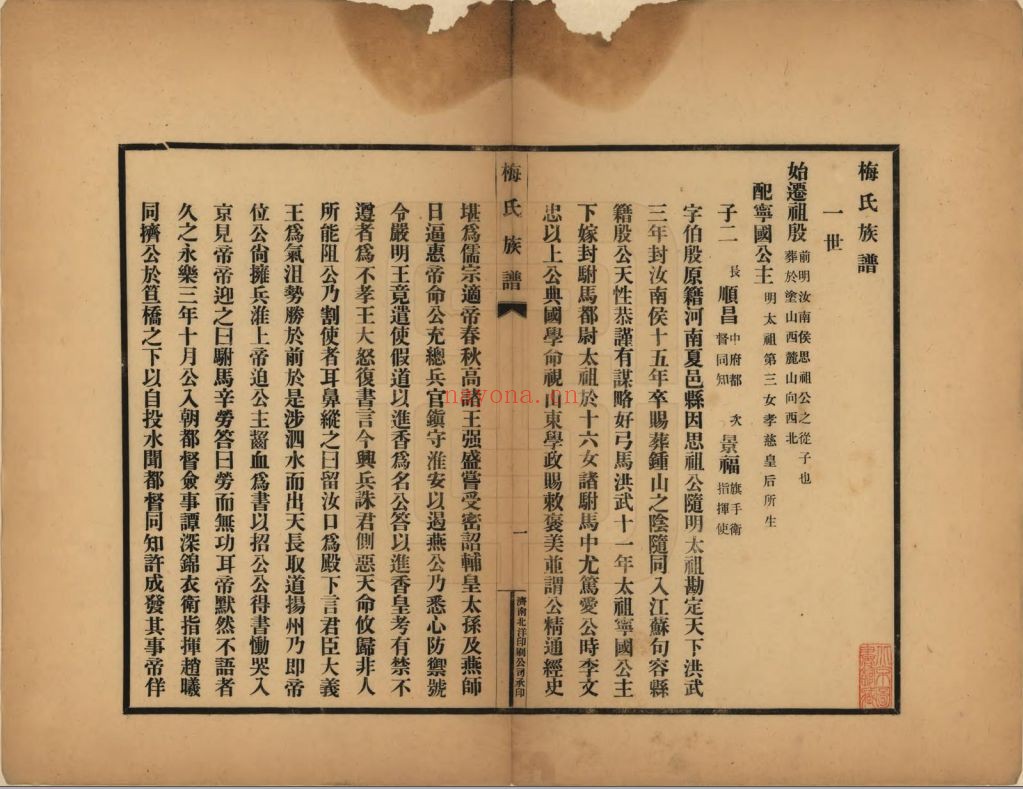 梅氏族譜
一世
始遷祖殷 前明汝南侯思祖公之從子也
葬於塗山西麓山向西北
配寧國公主 明太祖第三女孝慈皇后所生
子二 長 順昌 中府都督同知 次 景福 旗手衛指揮使
字伯殷原籍河南夏邑縣因思祖公隨明太祖勘定天下洪武
三年封汝南侯十五年卒賜葬鍾山之陰隨同入江蘇句容縣
籍殷公天性恭謹有謀略好弓馬洪武十一年太祖寧國公主
下嫁封駙馬都尉太祖於十六女諸駙馬中尤篤愛公時李文
忠以上公典國學命視山東學政賜敕褒美並謂公精通經史
梅氏族譜
一
濟南北洋印刷公司承印
堪爲儒宗適帝春秋高諸王强盛嘗受密詔輔皇太孫及燕師
日逼惠帝命公充總兵官鎮守淮安以遏燕公乃悉心防禦號
令嚴明王竟遣使假道以進香爲名公答以進香皇考有禁不
遵者爲不孝王大怒復書言今興兵誅君側惡天命攸歸非人
所能阻公乃割使者耳鼻縱之曰留汝口爲殿下言君臣大義
王爲氣沮勢勝於前於是涉泗水而出天長取道揚州乃即帝
位公尙擁兵淮上帝迫公主齧血爲書以招公公得書慟哭入
京見帝帝迎之曰駙馬辛勞答曰勞而無功耳帝默然不語者
久之永樂三年十月公入朝都督僉事譚深錦衣衛指揮趙曦
同擠公於笪橋之下以自投水聞都督同知許成發其事帝佯
nayona.cn